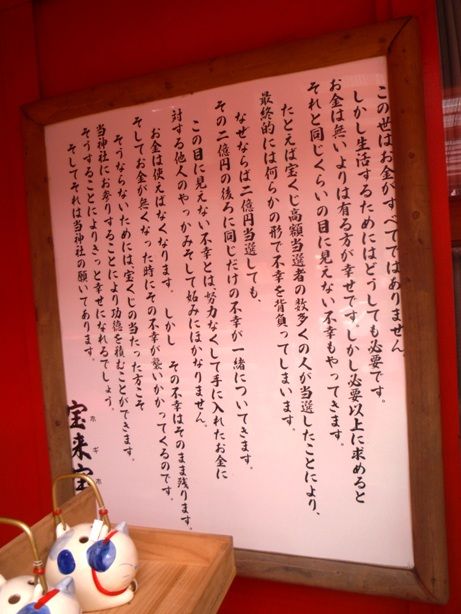 この世はお金がすべてではありません
しかし生活するためにはどうしても必要です。
お金は無いよりは有る方が幸せです。しかし必要以上に求めると
それと同じくらいの目に見えない不幸もやってきます。
たとえば宝くじ高額当選者の数多くの人が当選したことにより、
最終的には何らかの形で不幸を背負ってしまいます。
なぜならば二億円当選しても、
その二億円の後ろに同じだけの不幸が一緒についてきます。
この目に見えない不幸とは、努力なくして手に入れたお金に
対する他人のやっかみそして妬みにほかなりません。
お金は使えばなくなります。しかし その不幸はそのまま残ります。
そしてお金が無くなった時にその不幸が襲いかかってくるのです。
そうならないためには宝くじの当たった方こそ
当神社にお参りすることにより功徳を積むことができます。
そうすることによりきっと幸せになれるでしょう。
そしてそれは当神社の願いであります。
宝来宝
ホギホ